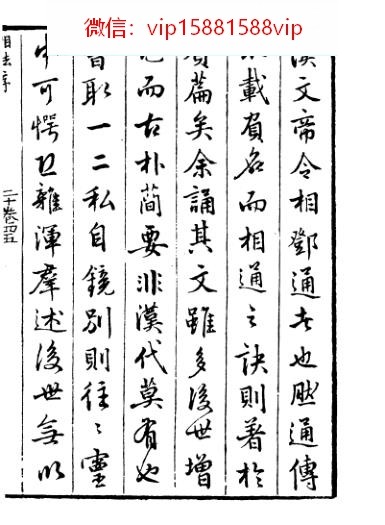 微信：vip15881588vip
漢文帝令相鄧通者也然通傳
載負名而相通之訣則著於
篇矣余誦其文雖多後世增
而古朴蕳要非漢代莫有也
取一二私自鏡別則往〻靈
可愕且雜渾羣述後世無以
相法序
二十卷